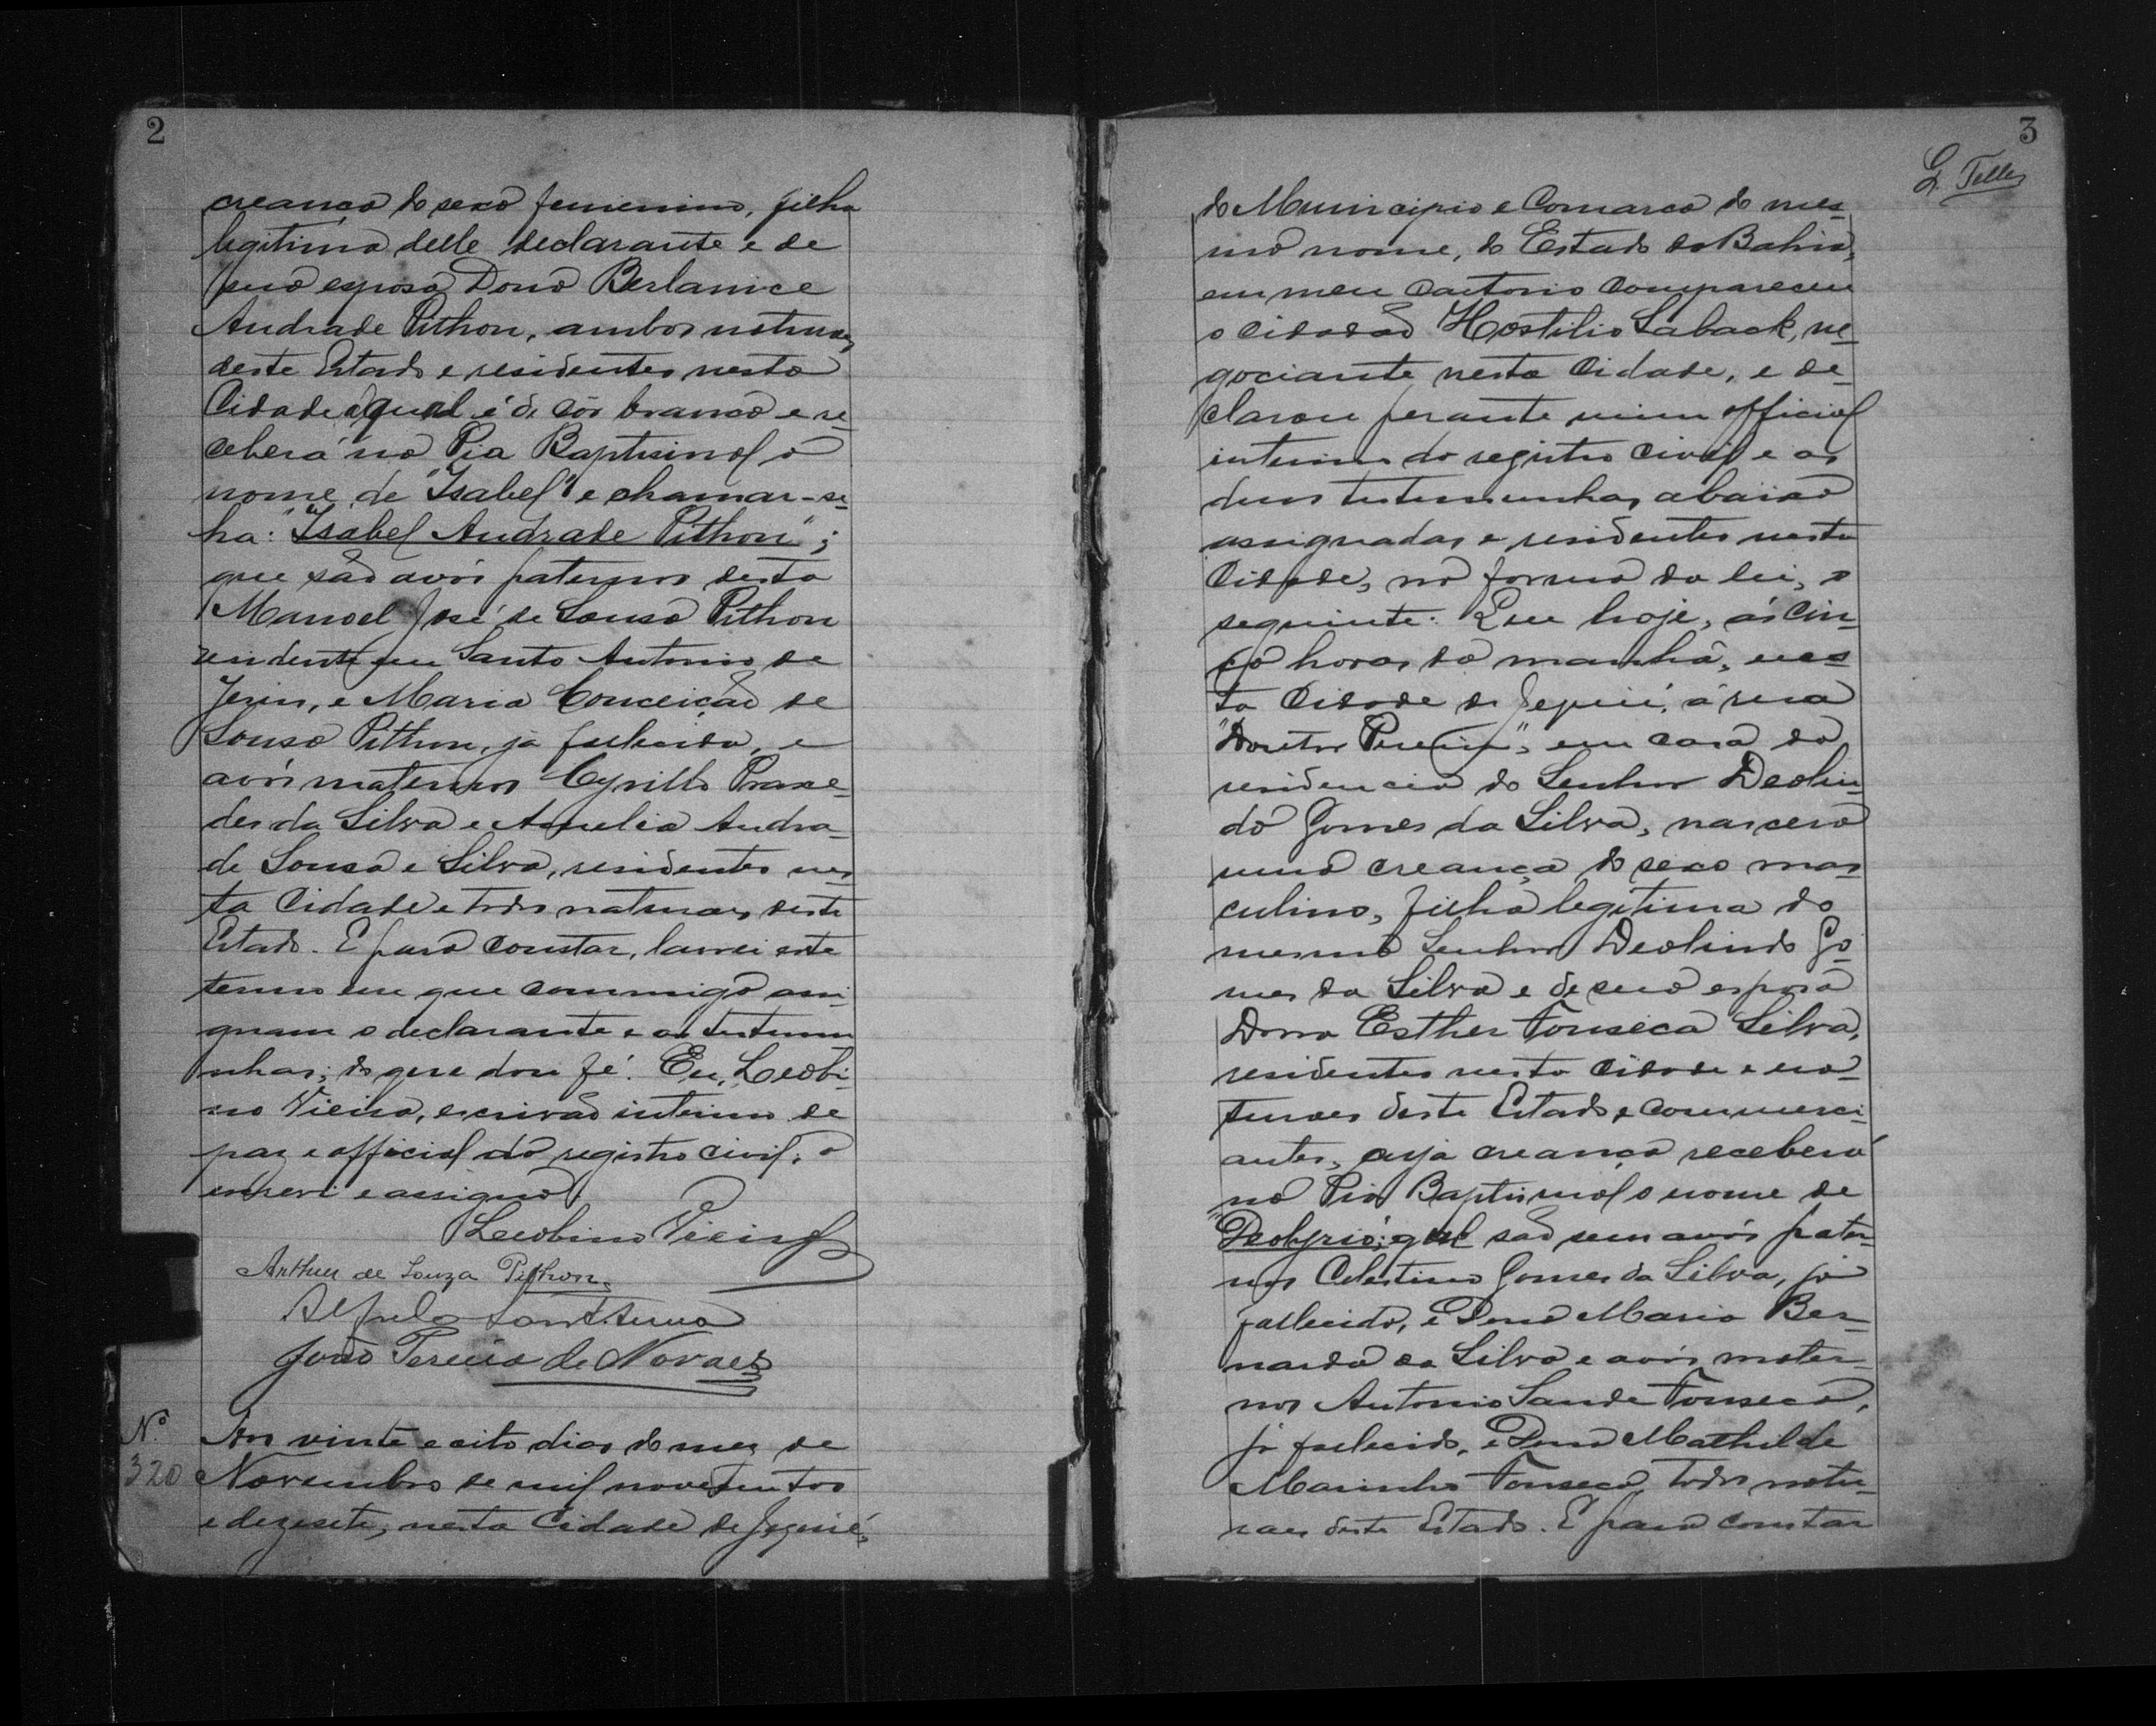 2
creança do sexo femenino, filha
legitima delle declarante e de
sua esposa Dona Berlanice
Andrade Pithon, ambos naturaes
deste Estado e residentes nesta
Cidade a qual é de côr branca e re-
ceberá na Pia Baptismal o
nome de "Isabel" e chamar-se-
ha: "Isabel Andrade Pithon";
que são avós paternos desta
Manoel José de Sousa Pithon
residente em Santo Antonio de
Jesus, e Maria Conceição de
Sousa Pithon, já fallecida, e
avós maternos Cyrillo Praxe-
des da Silva e Amelia Andra-
de Sousa e Silva, residentes nes-
ta Cidade e todos naturaes deste
Estado. E para constar, lavrei este
termo em que commigo assi-
gnam o declarante e as testemu
nhas; do que dou fé. Eu, Leobi-
no Vieira, escrivão interino de
paz e official do registro civil, o
escrevi e assigno.
Leobino Vieira
Arthur de Souza Pithon
Alfredo Sant'Anna
João Pereira de Novaes
Nº
320
Aos vinte e oito dias do mez de
Novembro de mil novecentos
e dezesete, nesta Cidade de Jequié,
3
G. Telles
do Municipio e Comarca do mes-
mo nome, do Estado da Bahia,
em meu Cartorio compareceu
o cidadão Hostilio Saback, ne-
gociante nesta Cidade, e de-
clarou perante mim official
interino do registro civil e as
duas testemunhas abaixo
assignadas e residentes nesta
Cidade, na forma da lei, o
seguinte: Que hoje, ás cin-
co horas da manhã, nes-
ta Cidade de Jequié, á rua
"Doutor ", em casa da
residencia do Senhor Deolin-
do Gomes da Silva, nascera
uma creança do sexo mas
culino, filha legitima do
mesmo Senhor Deolindo Go-
mes da Silva e de sua esposa
Dona Esther Fonseca Silva,
residentes nesta Cidade e na-
turaes deste Estado e commerci-
antes, cuja creança receberá
na Pia Baptismal o nome de
; que são seus avós pater-
nos Celestino Gomes da Silva, já
fallecido, e Dona Maria Ber-
narda da Silva e avós mater-
nos Antonio Sande Fonseca,
já fallecido, e Dona Mathilde
Marinho Fonseca, todos natu-
raes deste Estado. E para constar